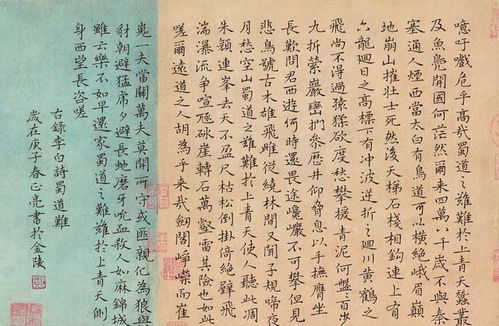 噫吁戲危乎高哉蜀道之難難於上青天蠶叢
及魚鳧開國何茫然爾來四萬八千歲不與秦
塞通人煙西當太白有鳥道可以橫絕峨眉巔
地崩山摧壯士死然後天梯石棧相鉤連上有
六龍迴日之高標下有冲波逆折之迴川黃鶴之
飛尚不得過猿猱欲度愁攀援青泥何盤盤百步
九折縈巖巒捫參歷井仰脅息以手撫膺坐
長歎問君西遊何時還畏途巉巖不可攀但見
悲鳥號古木雄飛雌從繞林間又聞子規啼夜
月愁空山蜀道之難難於上青天使人聽此凋
朱顏連峯去天不盈尺枯松倒掛倚絕壁飛
湍瀑流爭喧豗砯崖轉石萬壑雷其險也如此
嗟爾遠道之人胡為乎來哉劍閣崢嶸而崔
嵬一夫當關萬夫莫開所守或匪親化為狼與
豺朝避猛虎夕避長蛇磨牙吮血殺人如麻錦城
雖云樂不如早還家蜀道之難難於上青天側
身西望長咨嗟
右錄李白詩蜀道難
歲在庚子春正亮書於金陵